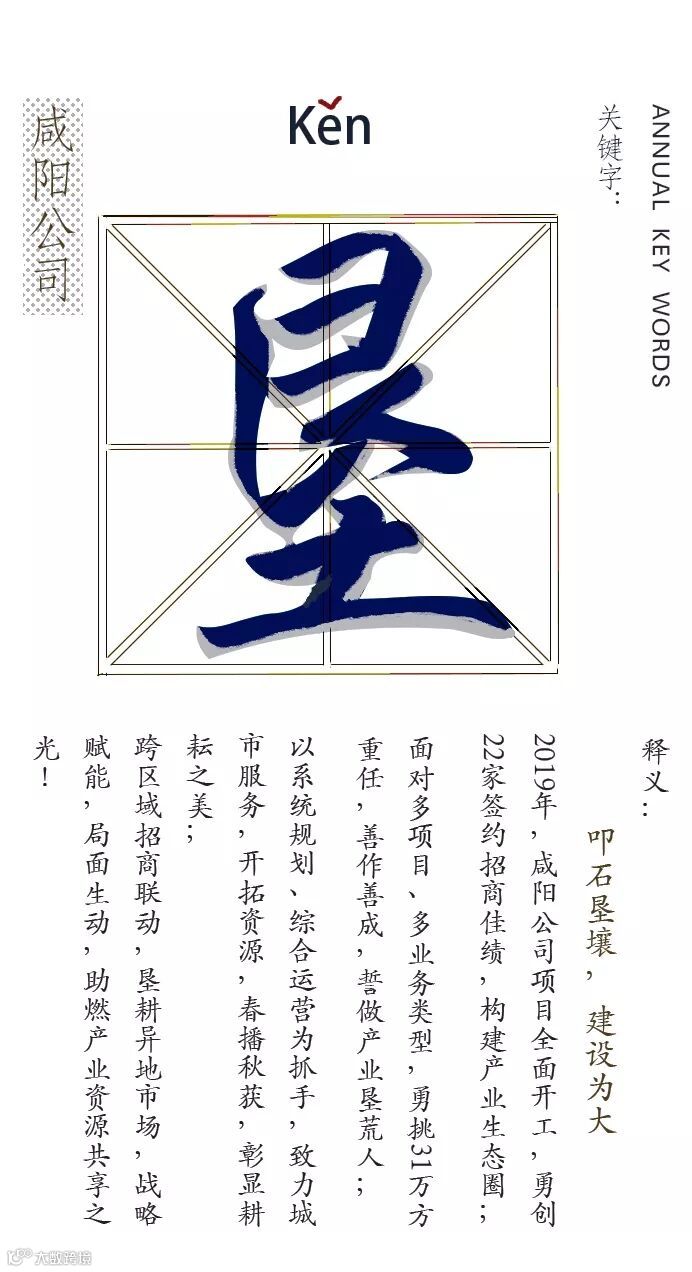 ANNUAL KEY WORDS
关键字：
Kěn
咸阳公司
垦
释义：
叩石垦壤，建设为大
2019年，咸阳公司项目全面开工，勇创
22家签约招商佳绩，构建产业生态圈；
面对多项目、多业务类型，勇挑31万方
重任，善作善成，誓做产业垦荒人；
以系统规划、综合运营为抓手，致力城
市服务，开拓资源，春播秋获，彰显耕
耘之美；
跨区域招商联动，垦耕异地市场，战略
赋能，局面生动，助燃产业资源共享之
光！
大数跨境